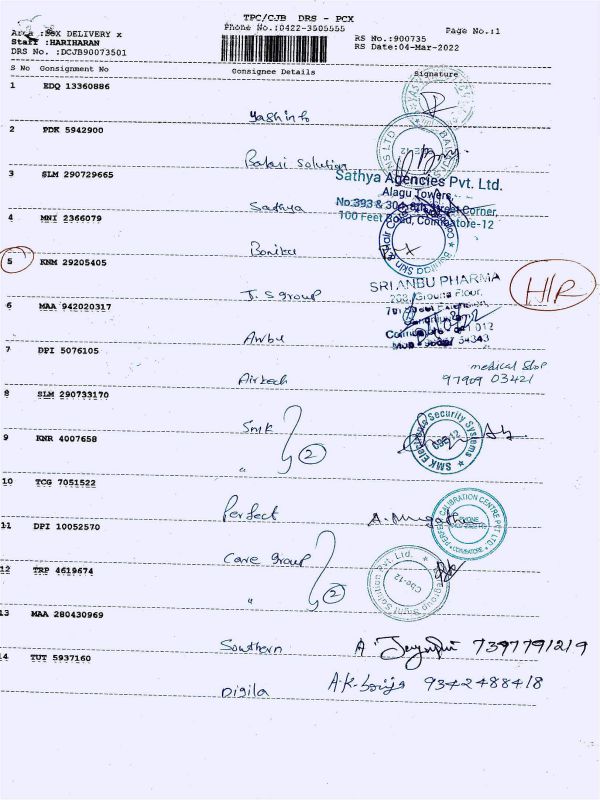 TPC/CJB DRS - PCX
Phone No.:0422-3505555
Page No.:1
Area :BOX DELIVERY x
Staff :HARIHARAN
DRS No. :DCJB90073501
RS No.:900735
RS Date:04-Mar-2022
S No Consignment No Consignee Details Signature
1 EDQ 13360886
Yashinfo
2 PDK 5942900
Balaji Solution
3 SLM 290729665
Sathya Agencies Pvt. Ltd.
Alagu Towers,
Sathya
No.393 & 394 Street Corner,
100 Feet Road, Coimbatore-12
4 MNI 2366079
Bonita
5 KNM 29205405
SRI ANBU PHARMA
J.S group
H/R
6 MAA 942020317
Anbu
7 DPI 5076105
medical shop
Airtech
97909 03421
8 SLM 290733170
Smk
SMK Electronic Security Systems
CBE-12
9 KNR 4007658
" 2
10 TCG 7051522
Perfect
CALIBRATION CENTRE PVT LTD.
COIMBATORE
11 DPI 10052570
Care group
12 TRP 4619674
Cbe-12
" 2
13 MAA 280430969
Southern
7397791219
14 TUT 5937160
Digila
9342488418